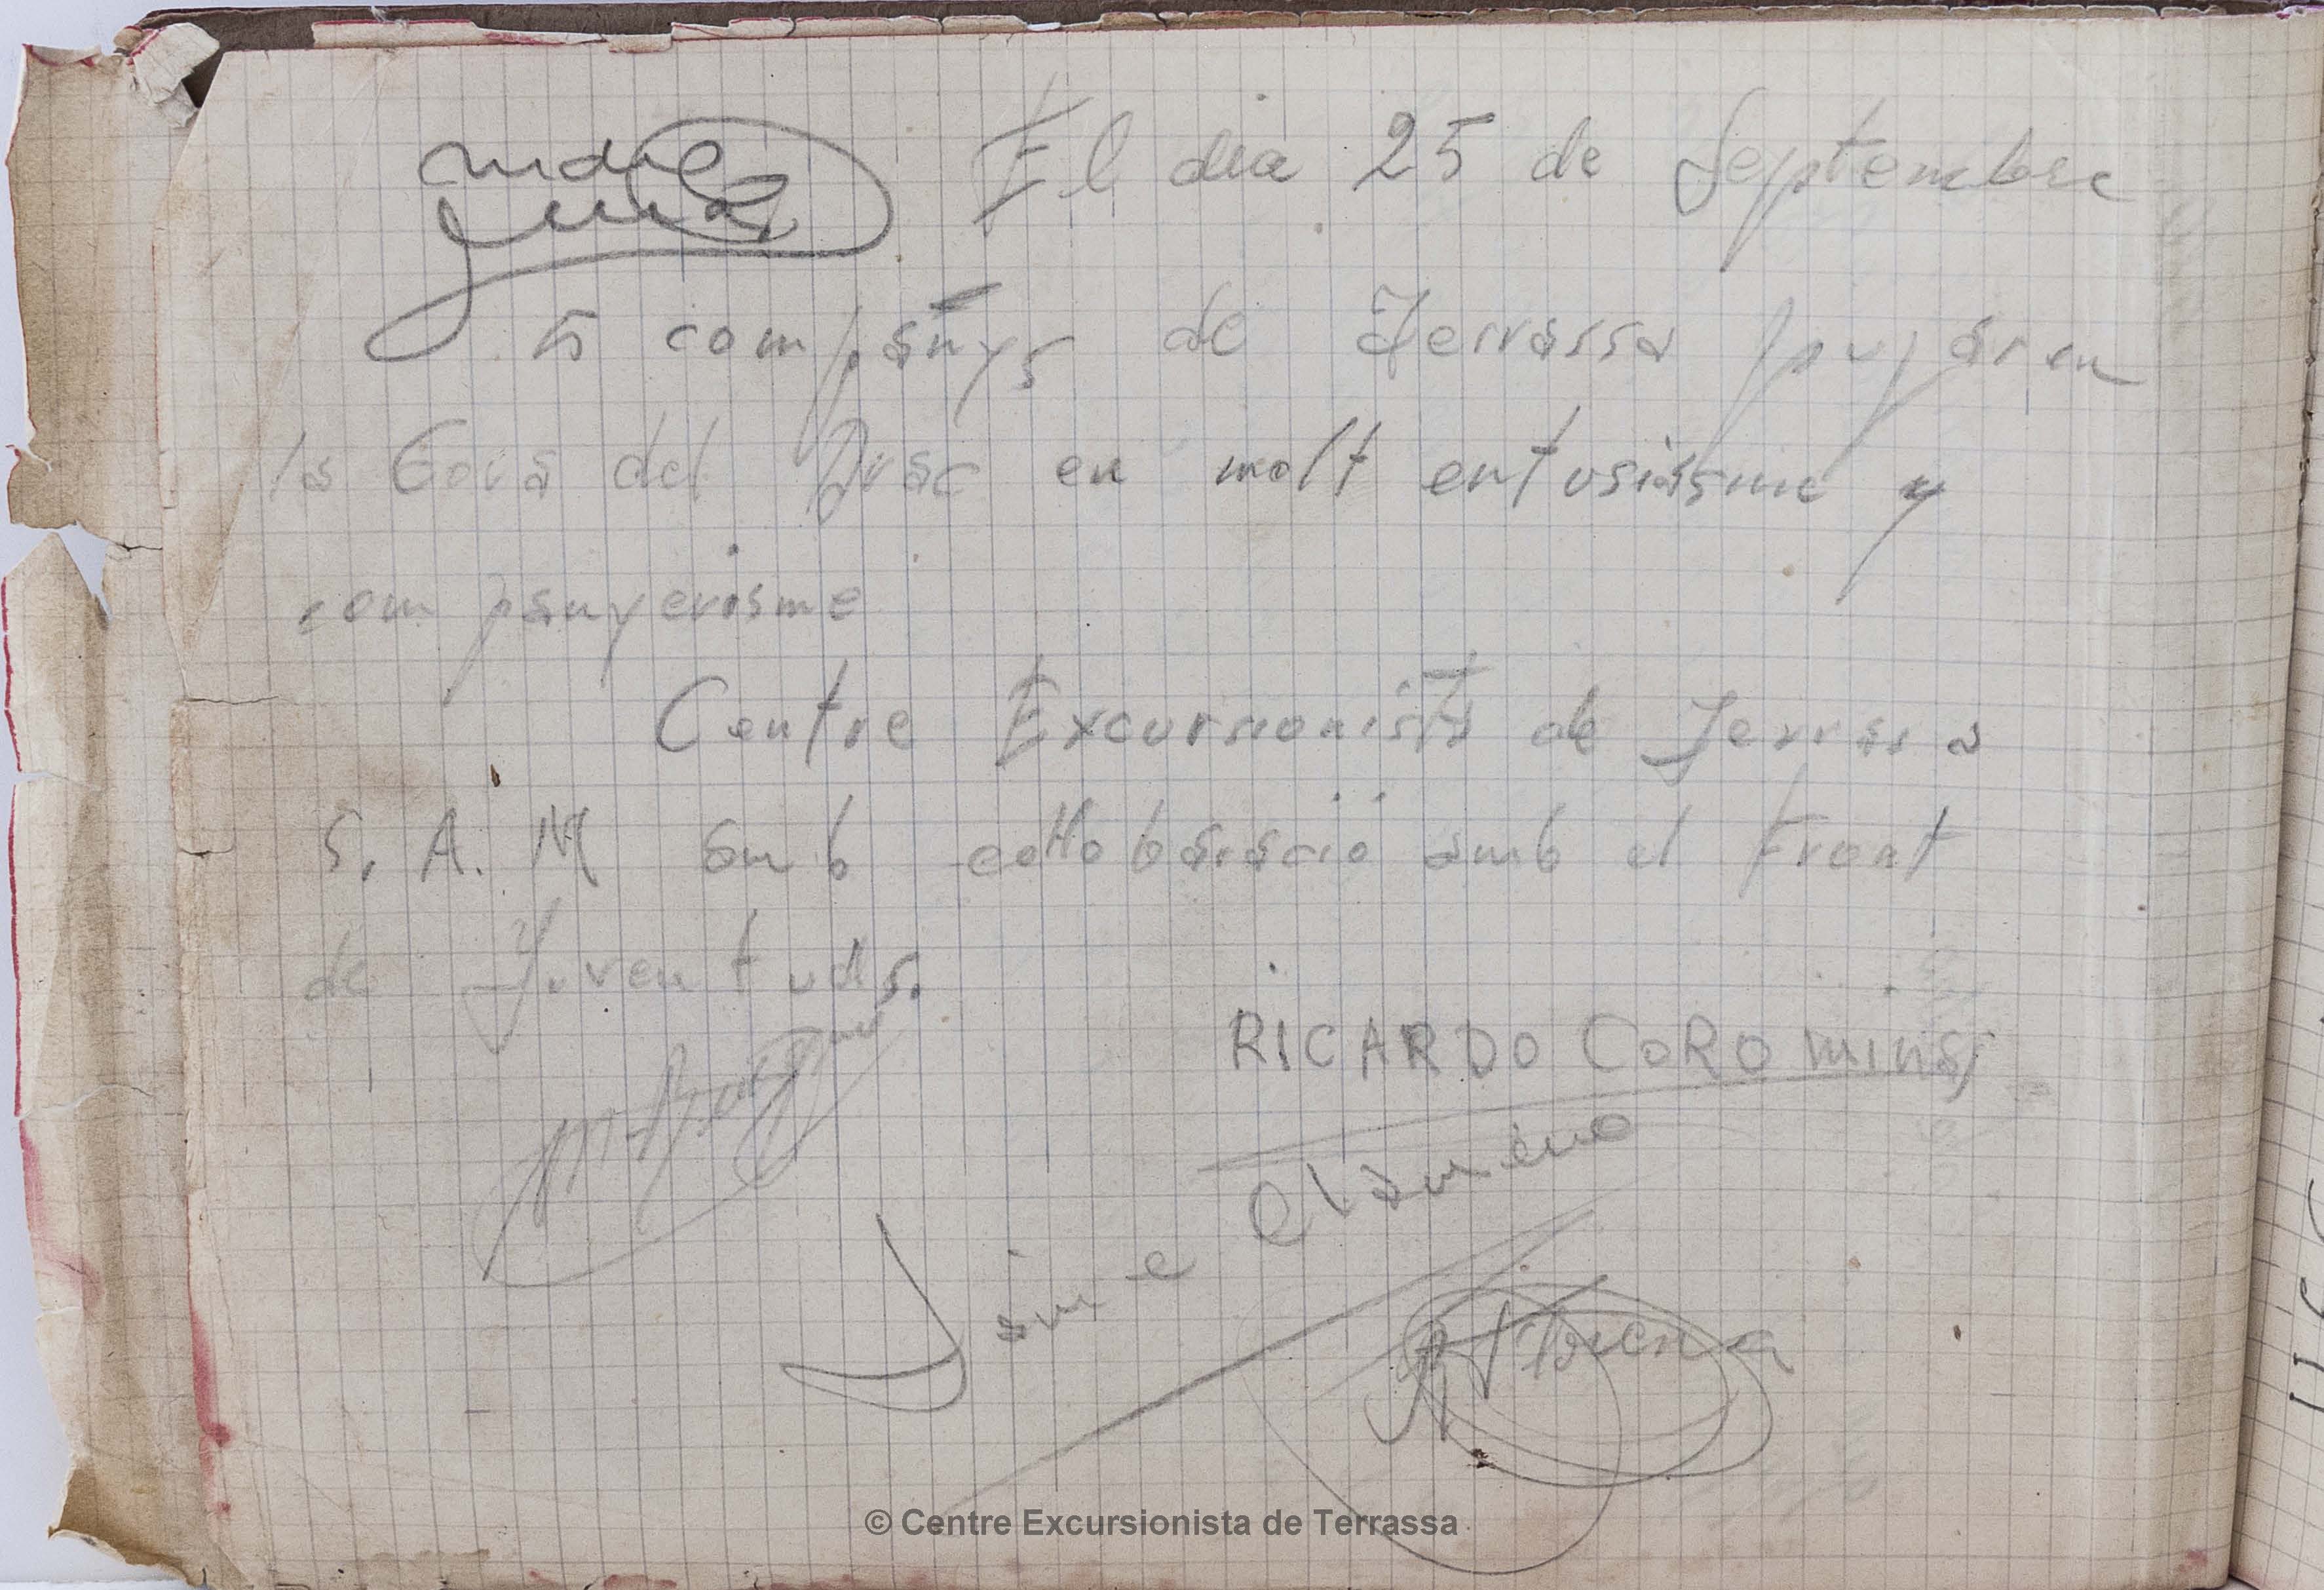 El dia 25 de Septembre
5 compañys de Terrassa pujaren
la Cova del Drac en molt entusiasme y
companyerisme
Centre Excursionista de Terrassa
S. A. M amb collobaració amb el Front
de Juventuds.
RICARDO COROMINAS
Jaime Altimira
© Centre Excursionista de Terrassa